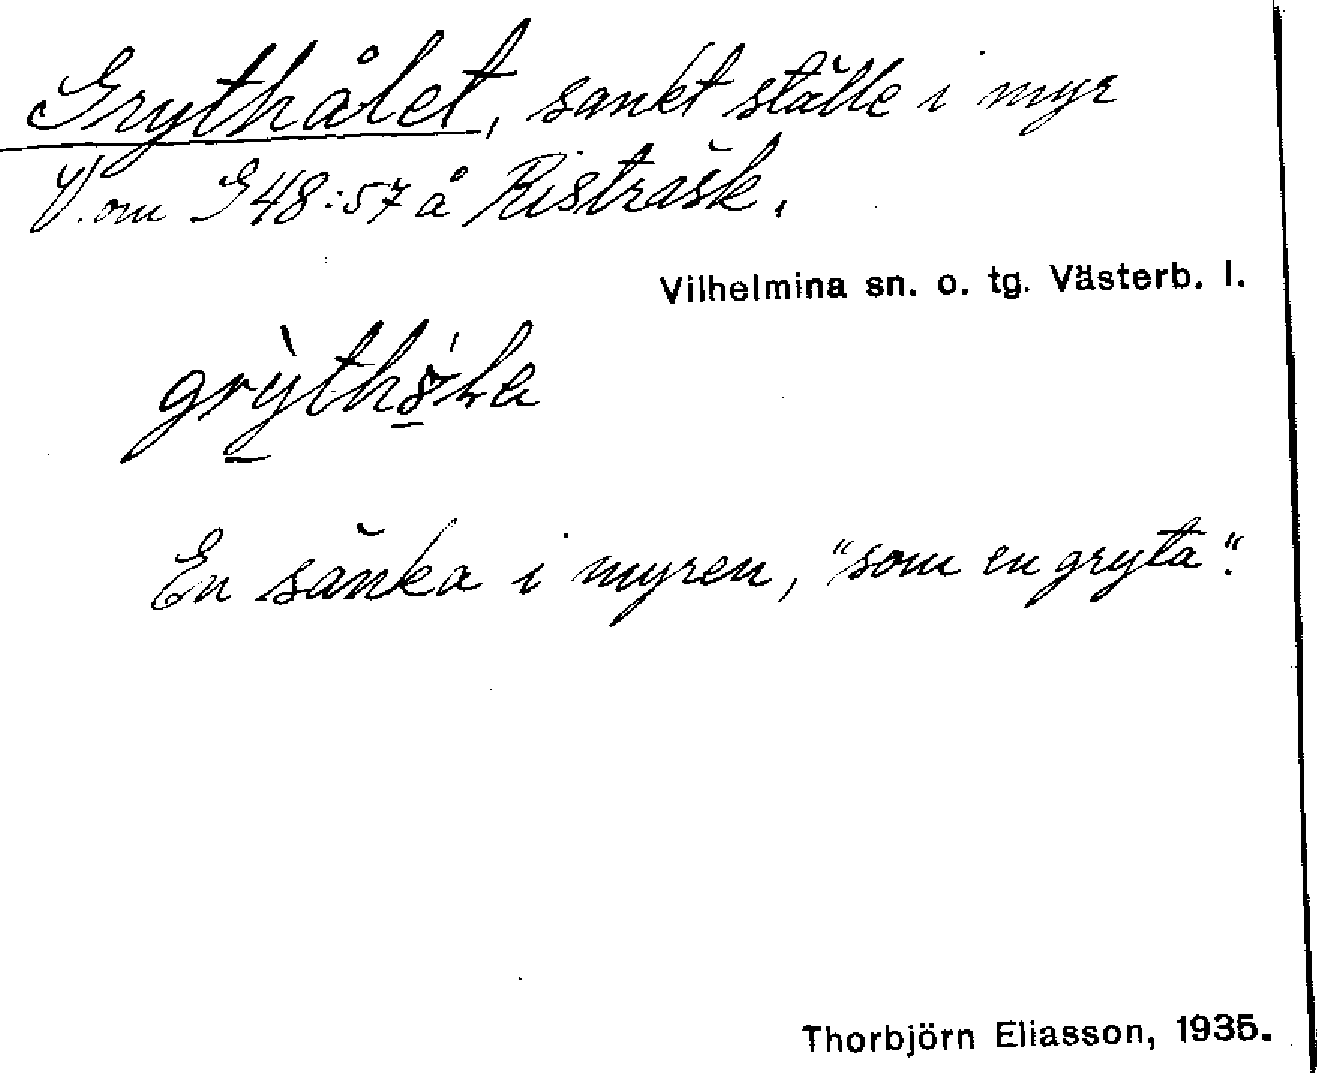 Grythålet, sankt ställe i myr
V. om G 48:57 å Risträsk.
Vilhelmina sn. o. tg. Västerb. l.
En sänka i myren, "som en gryta".
Thorbjörn Eliasson, 1935.